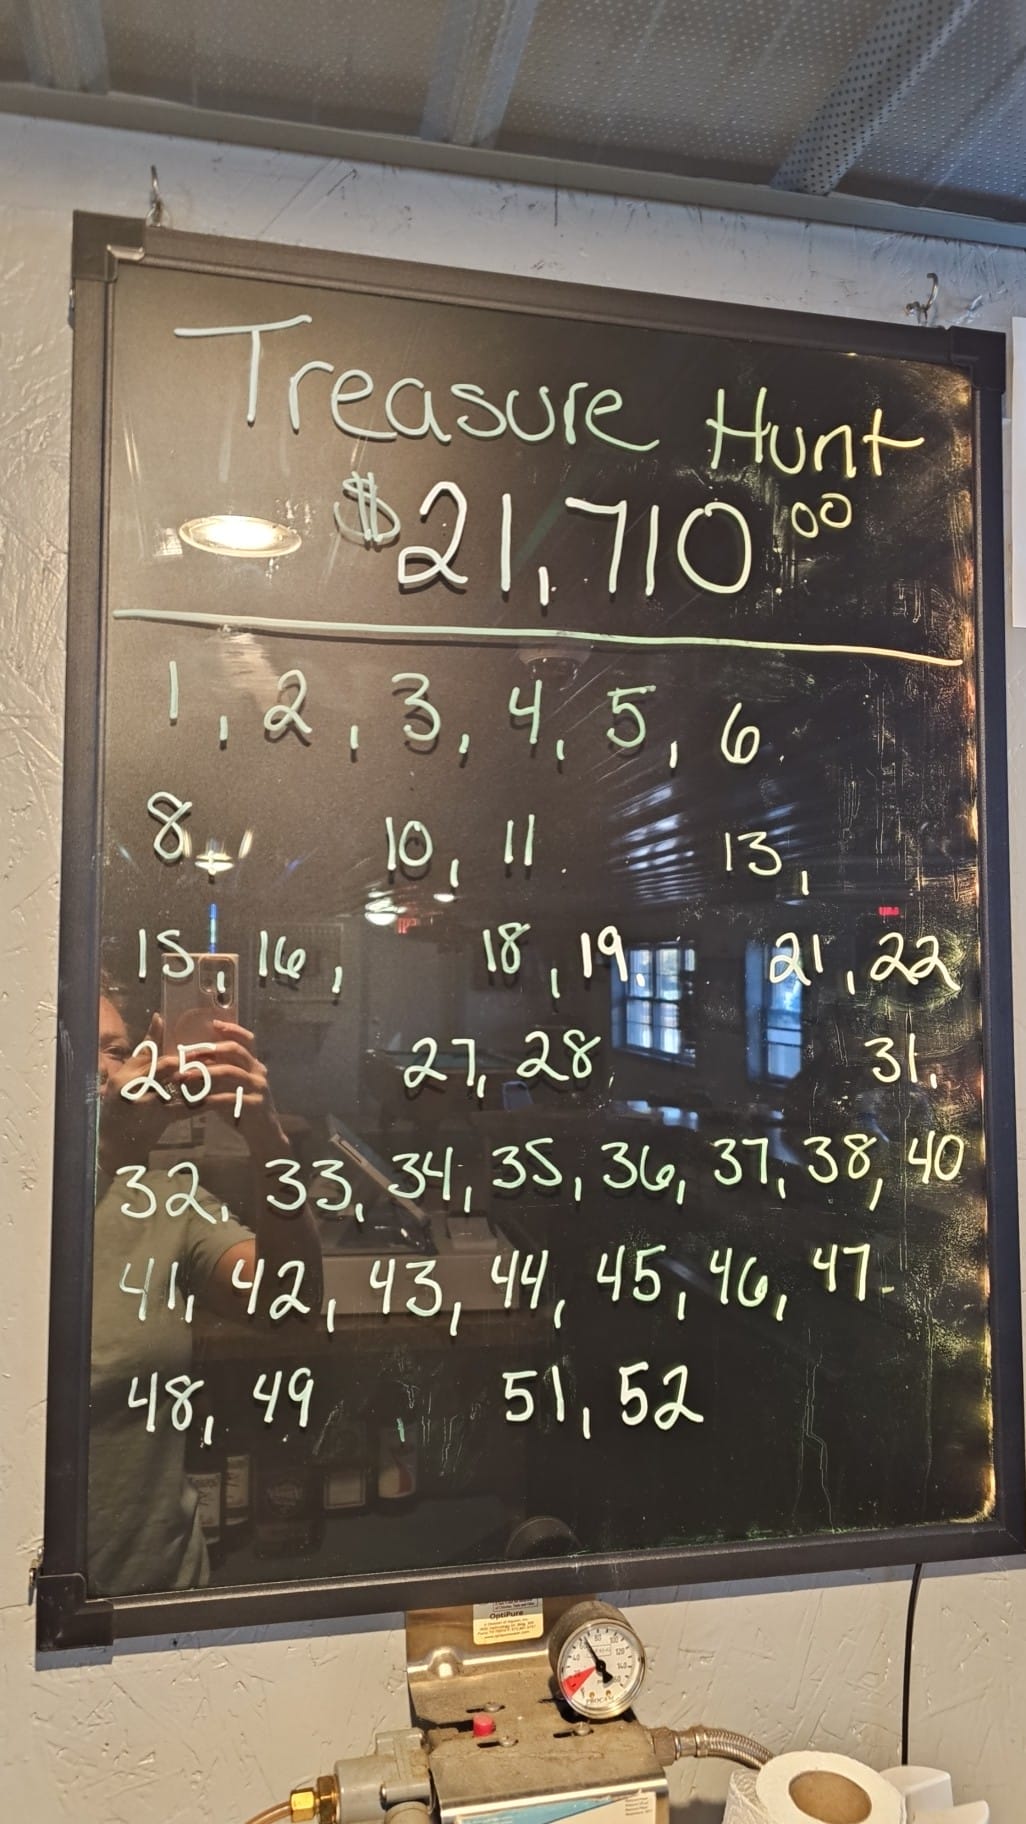 Treasure Hunt
$21,710.00
1, 2, 3, 4, 5, 6.
8, 10, 11 13,
15, 16, 18, 19. 21, 22
25, 27, 28, 31,
32, 33, 34, 35, 36, 37, 38, 40
41, 42, 43, 44, 45, 46, 47
48, 49 , 51, 52
OptiPure